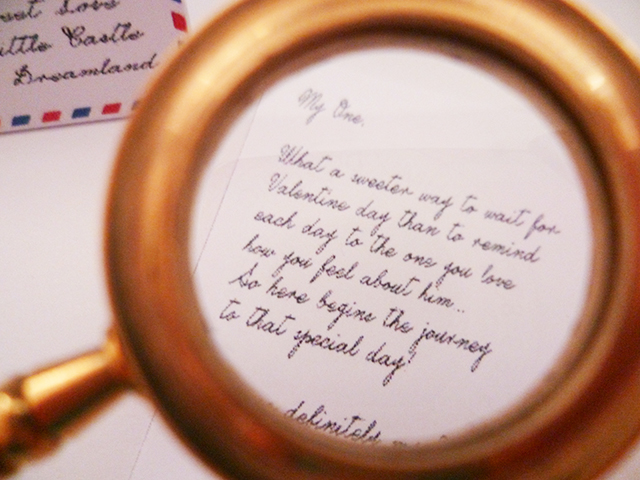 Love
Little Castle
Dreamland
My One,
What a sweeter way to wait for
Valentine day than to remind
each day to the one you love
how you feel about him..
So here begins the journey
to that special day!
definitely